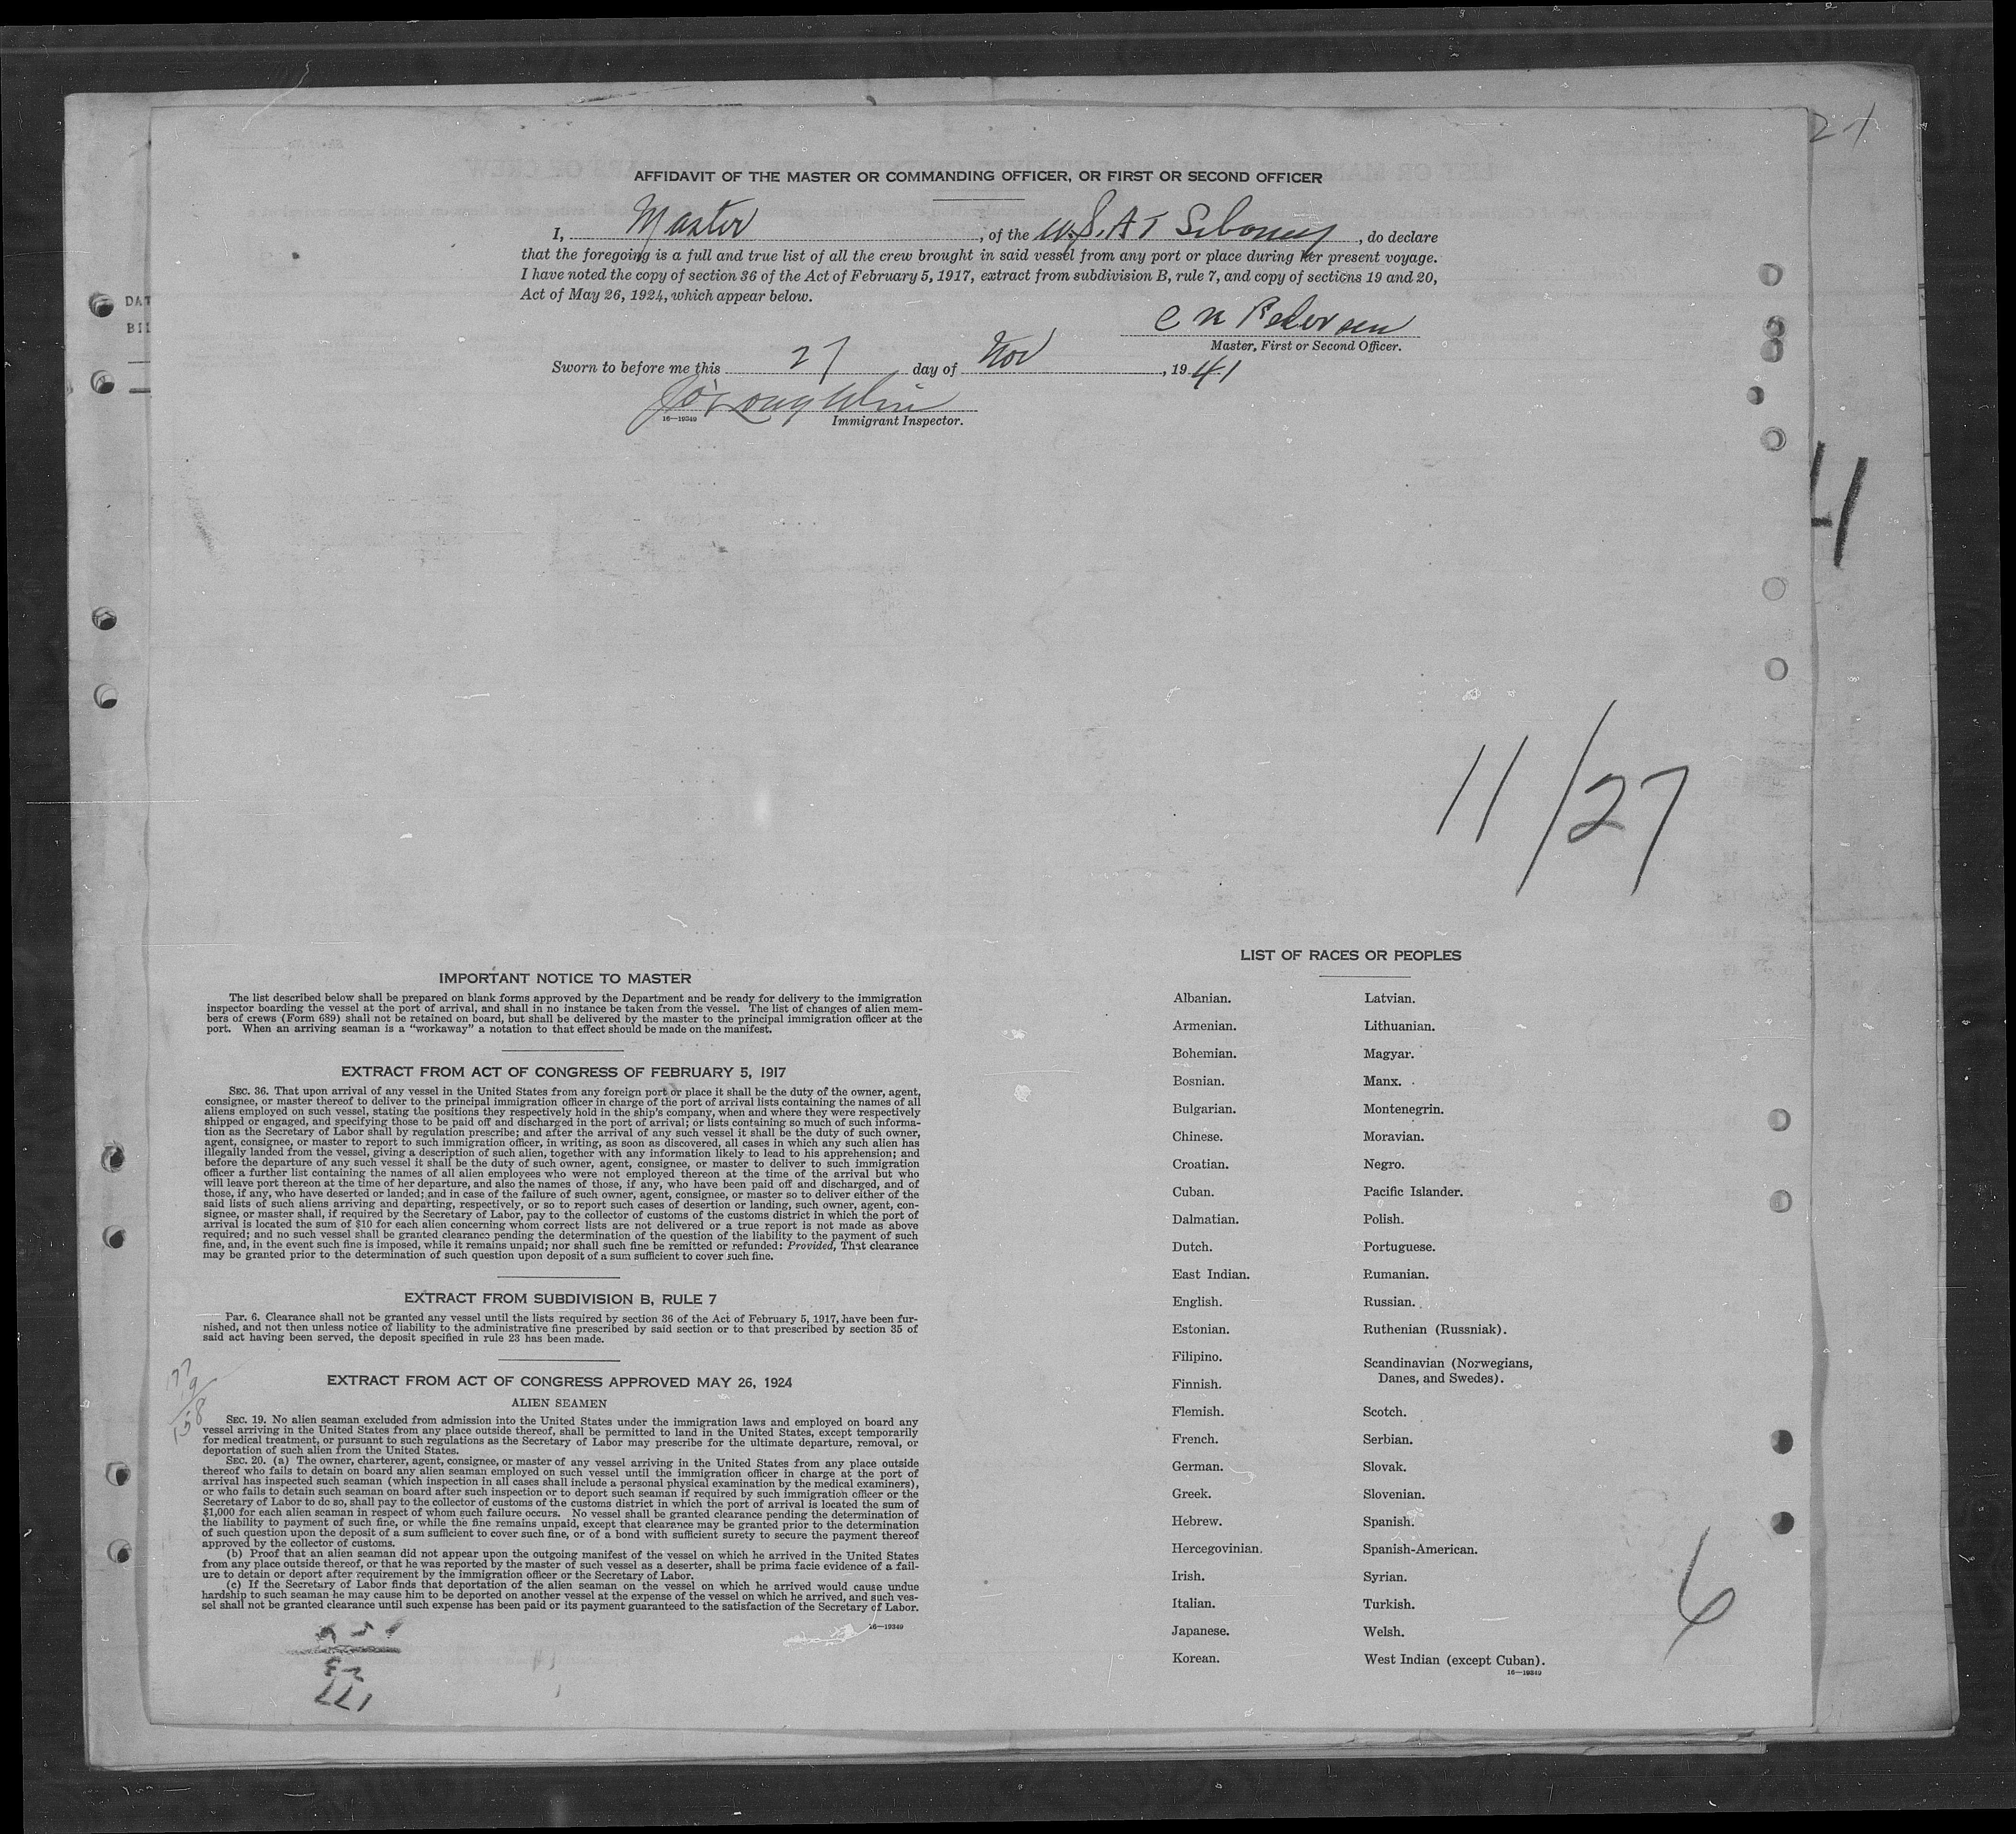 21
AFFIDAVIT OF THE MASTER OR COMMANDING OFFICER, OR FIRST OR SECOND OFFICER
I, Master, of the U.S.A T Siboney, do declare
that the foregoing is a full and true list of all the crew brought in said vessel from any port or place during her present voyage.
I have noted the copy of section 36 of the Act of February 5, 1917, extract from subdivision B, rule 7, and copy of sections 19 and 20,
Act of May 26, 1924, which appear below.
DAT
BIL
C N Petersen
Master, First or Second Officer.
Sworn to before me this 27 day of Nov, 1941
16—19349
Immigrant Inspector.
11/27
IMPORTANT NOTICE TO MASTER
The list described below shall be prepared on blank forms approved by the Department and be ready for delivery to the immigration
inspector boarding the vessel at the port of arrival, and shall in no instance be taken from the vessel. The list of changes of alien mem-
bers of crews (Form 689) shall not be retained on board, but shall be delivered by the master to the principal immigration officer at the
port. When an arriving seaman is a "workaway" a notation to that effect should be made on the manifest.
EXTRACT FROM ACT OF CONGRESS OF FEBRUARY 5, 1917
SEC. 36. That upon arrival of any vessel in the United States from any foreign port or place it shall be the duty of the owner, agent,
consignee, or master thereof to deliver to the principal immigration officer in charge of the port of arrival lists containing the names of all
aliens employed on such vessel, stating the positions they respectively hold in the ship's company, when and where they were respectively
shipped or engaged, and specifying those to be paid off and discharged in the port of arrival; or lists containing so much of such informa-
tion as the Secretary of Labor shall by regulation prescribe; and after the arrival of any such vessel it shall be the duty of such owner,
agent, consignee, or master to report to such immigration officer, in writing, as soon as discovered, all cases in which any such alien has
illegally landed from the vessel, giving a description of such alien, together with any information likely to lead to his apprehension; and
before the departure of any such vessel it shall be the duty of such owner, agent, consignee, or master to deliver to such immigration
officer a further list containing the names of all alien employees who were not employed thereon at the time of the arrival but who
will leave port thereon at the time of her departure, and also the names of those, if any, who have been paid off and discharged, and of
those, if any, who have deserted or landed; and in case of the failure of such owner, agent, consignee, or master so to deliver either of the
said lists of such aliens arriving and departing, respectively, or so to report such cases of desertion or landing, such owner, agent, con-
signee, or master shall, if required by the Secretary of Labor, pay to the collector of customs of the customs district in which the port of
arrival is located the sum of $10 for each alien concerning whom correct lists are not delivered or a true report is not made as above
required; and no such vessel shall be granted clearance pending the determination of the question of the liability to the payment of such
fine, and, in the event such fine is imposed, while it remains unpaid; nor shall such fine be remitted or refunded: Provided, That clearance
may be granted prior to the determination of such question upon deposit of a sum sufficient to cover such fine.
EXTRACT FROM SUBDIVISION B, RULE 7
PAR. 6. Clearance shall not be granted any vessel until the lists required by section 36 of the Act of February 5, 1917, have been fur-
nished, and not then unless notice of liability to the administrative fine prescribed by said section or to that prescribed by section 35 of
said act having been served, the deposit specified in rule 23 has been made.
177
19
158
EXTRACT FROM ACT OF CONGRESS APPROVED MAY 26, 1924
ALIEN SEAMEN
SEC. 19. No alien seaman excluded from admission into the United States under the immigration laws and employed on board any
vessel arriving in the United States from any place outside thereof, shall be permitted to land in the United States, except temporarily
for medical treatment, or pursuant to such regulations as the Secretary of Labor may prescribe for the ultimate departure, removal, or
deportation of such alien from the United States.
SEC. 20. (a) The owner, charterer, agent, consignee, or master of any vessel arriving in the United States from any place outside
thereof who fails to detain on board any alien seaman employed on such vessel until the immigration officer in charge at the port of
arrival has inspected such seaman (which inspection in all cases shall include a personal physical examination by the medical examiners),
or who fails to detain such seaman on board after such inspection or to deport such seaman if required by such immigration officer or the
Secretary of Labor to do so, shall pay to the collector of customs of the customs district in which the port of arrival is located the sum of
$1,000 for each alien seaman in respect of whom such failure occurs. No vessel shall be granted clearance pending the determination of
the liability to payment of such fine, or while the fine remains unpaid, except that clearance may be granted prior to the determination
of such question upon the deposit of a sum sufficient to cover such fine, or of a bond with sufficient surety to secure the payment thereof
approved by the collector of customs.
(b) Proof that an alien seaman did not appear upon the outgoing manifest of the vessel on which he arrived in the United States
from any place outside thereof, or that he was reported by the master of such vessel as a deserter, shall be prima facie evidence of a fail-
ure to detain or deport after requirement by the immigration officer or the Secretary of Labor.
(c) If the Secretary of Labor finds that deportation of the alien seaman on the vessel on which he arrived would cause undue
hardship to such seaman he may cause him to be deported on another vessel at the expense of the vessel on which he arrived, and such ves-
sel shall not be granted clearance until such expense has been paid or its payment guaranteed to the satisfaction of the Secretary of Labor.
16—19349
LIST OF RACES OR PEOPLES
Albanian.
Armenian.
Bohemian.
Bosnian.
Bulgarian.
Chinese.
Croatian.
Cuban.
Dalmatian.
Dutch.
East Indian.
English.
Estonian.
Filipino.
Finnish.
Flemish.
French.
German.
Greek.
Hebrew.
Hercegovinian.
Irish.
Italian.
Japanese.
Korean.
Latvian.
Lithuanian.
Magyar.
Manx.
Montenegrin.
Moravian.
Negro.
Pacific Islander.
Polish.
Portuguese.
Rumanian.
Russian.
Ruthenian (Russniak).
Scandinavian (Norwegians,
Danes, and Swedes).
Scotch.
Serbian.
Slovak.
Slovenian.
Spanish.
Spanish-American.
Syrian.
Turkish.
Welsh.
West Indian (except Cuban).
16—19349
6